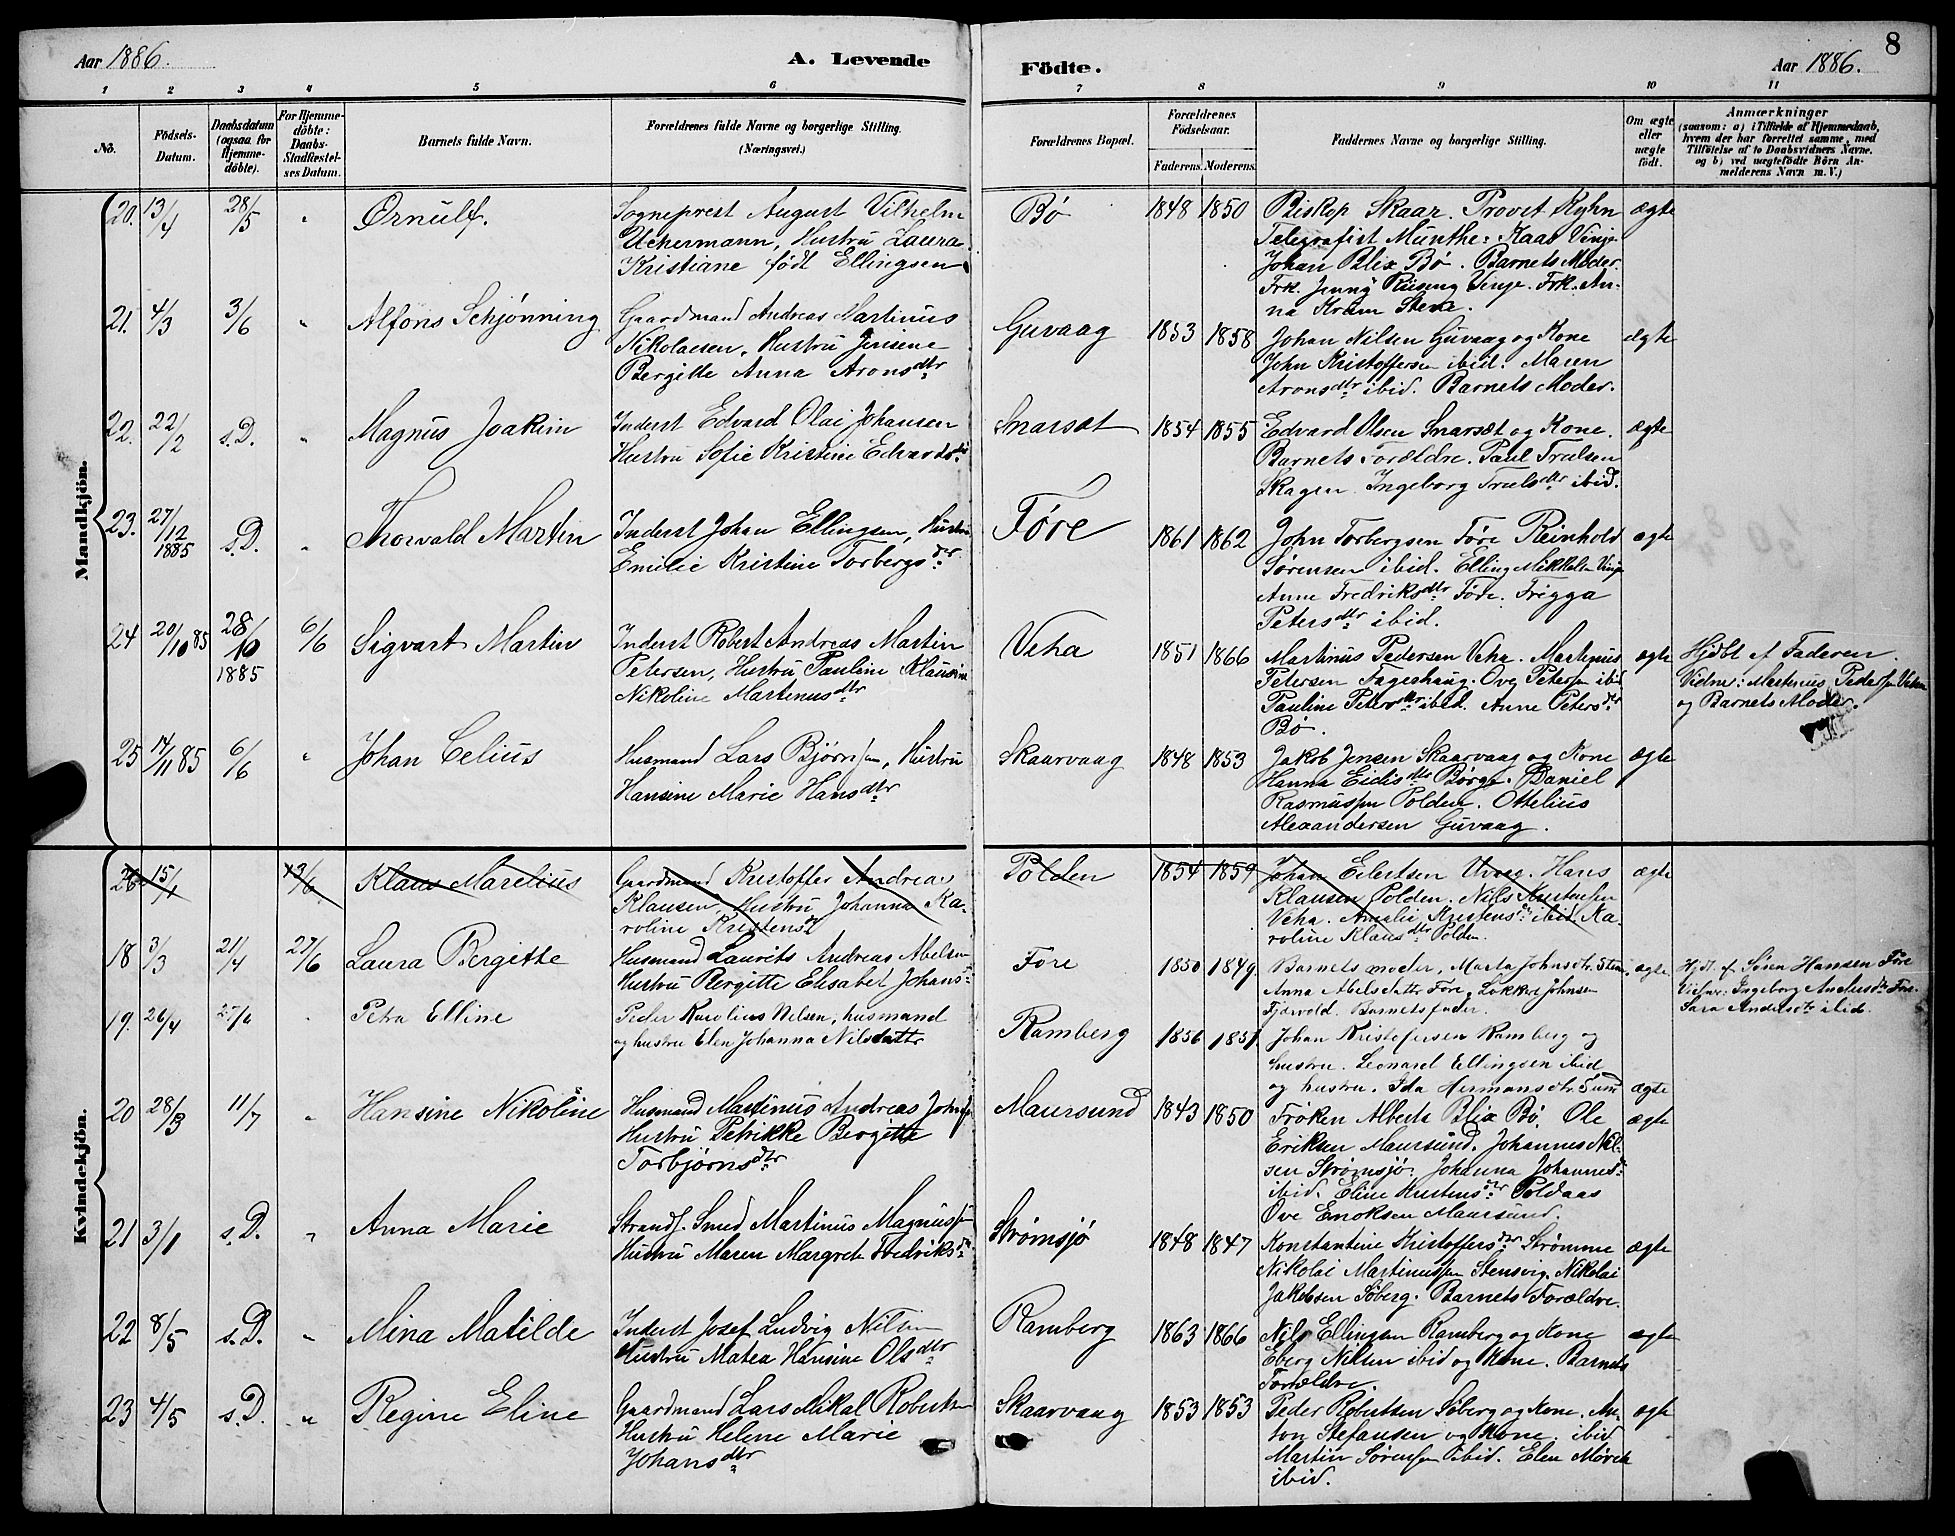 Aar 1886. A. Levende
Födte. Aar 1886. 8
1 2 3 4 5 6 7 8 9 10 11
No. Födsels-Datum. Daabsdatum (ogsaa for Hjemme-döbte). For Hjemme-döbte: Daabs-Stadfæstel-ses Datum. Barnets fulde Navn. Forældrenes fulde Navne og borgerlige Stilling. (Næringsvei.) Forældrenes Bopæl. Forældrenes Födselsaar. Faderens. Moderens. Faddernes Navne og borgerlige Stilling. Om ægte eller uægte födt. Anmærkninger (saasom: a) i Tilfælde af Hjemmedaab, hvem der har forrettet samme, med Tilföielse af to Daabsvidners Navne. og b) ved uægtefödte Börn An-melderens Navn m. V.)
Mandkjön.
20. 13/4 28/5 " Ørnulf. Sogneprest August Vilhelm Bø 1848 1850 Biskop Skaar. Provst Kyhn ægte
Uchermann, Hustru Laura Telegrafist Munthe-Kaas Vinje
Kristiane født Ellingsen Johan Blix Bø. Barnets Moder.
Frk. Jenny Riiseng Vinje. Frk. An-
na Kram Stene.
21. 4/3 3/6 " Alfons Schjønning Gaardmand Andreas Martinus Guvaag 1853 1858 Johan Nilsen Guvaag og Kone ægte
Nikolaisen, Hustru Jensine John Kristoffersen ibid. Maren
Bergitte Anna Aronsdtr Aronsdtr ibid. Barnets Moder.
22. 22/2 s.D. " Magnus Joakim Inderst Edvard Olai Johansen Snarsæt 1854 1855 Edvard Olsen Snarsæt og Kone. ægte
Hustru Sofie Kristine Edvardsdtr Barnets Forældre. Paul Trulsen
Skagen. Ingeborg Trulsdtr ibid.
23. 27/12 1885 s.D. " Thorvald Martin Inderst Johan Ellingsen, Hustru Føre 1861 1862 John Torbergsen Føre Reinhold ægte
Emilie Kristine Torbergsdtr Sørensen ibid. Elling Mikkelsen Vinje
Anne Fredriksdtr Føre. Frigga
Petersdtr ibid.
24 20/10 85 28/10 1885 6/6 Sigvart Martin Inderst Robert Andreas Martin Veha 1851 1866 Martinus Pedersen Veha. Martinus ægte Hjdbt af Faderen.
Petersen, Hustru Pauline Klausine Petersen Fageshaug. Ove Petersen ibid Vidner: Martinus Pedersen Veha
Nikoline Martinusdtr Pauline Petersdtr ibid. Anne Petersdtr og Barnets Moder.
Bø.
25 14/11 85 6/6 " Johan Celius Husmand Lars Bjørnsen, Hustru Skaarvaag 1848 1853 Jakob Jensen Skaarvaag og Kone ægte
Hansine Marie Hansdtr Hanna Eidisdtr Børge. Daniel
Rasmussen Polden. Othelius
Alexandersen Guvaag.
26 15/1 13/6 Klaus Marelius Gaardmand Kristoffer Andreas Polden 1854 1859 Johan Eilertsen Uvaag. Hans ægte
Klausen, Hustru Johanna Ka- Klausen Polden. Nils Kristensen
roline Kristensdtr Veha. Amalie Kristensdtr ibid Ka-
roline Klausdtr Polden.
Kvindekjön.
18 3/3 21/4 27/6 Laura Bergitte Husmand Laurits Andreas Abelsen Føre 1850 1849. Barnets moder, Marta Johnsdtr. Steine, ægte. Hjdt. af Søren Hansen Føre
Hustru Bergitte Elisabet Johansdtr Anna Abelsdatter Føre, Johnsen Vidner: Ingeborg Andersdtr Føre.
Fjærvold. Barnets fader. Sara Andersdtr ibid.
19. 26/4 27/6 " Petra Elline Peder Karolius Nilsen, husmand Ramberg 1856 1851. Johan Kristofersen Ramberg og
og hustru Elen Johanna Nilsdattr hustru. Leonard Ellingsen ibid
og hustru. Ida Hermansdtr. Sund ægte
20 28/3 11/7 " Hansine Nikoline Husmand Martinus Andreas Johnsen Maursund 1843 1850 Frøken Alberta Blix Bø. Ole ægte
Hustru Petrikke Bergitte Eriksen Maursund. Johannes Nil-
Torbjørnsdtr sen Strømsjø. Johanna Johannesdtr
ibid. Eline Kristensdtr Poldaas
Ove Enoksen Maursund.
21 3/1 s.D. " Anna Marie Strands. Smed Martinus Magnussen Strømsjø 1848 1847 Konstantine Kristoffersdtr Strømme ægte
Hustru Maren Margrete Fredriksdtr Nikolai Martinussen Stensvig. Nikolai
Jakobsen Søberg. Barnets Forældre.
22 8/5 s.D. " Mina Matilde Inderst Josef Ludvig Nilsen Ramberg 1863 1866 Nils Ellingsen Ramberg og Kone ægte
Hustru Matea Hansine Olsdtr Eberg Nilsen ibid og Kone. Barnets
Forældre.
23 4/5 s.D. " Regine Eline Gaardmand Lars Mikal Robertsen Skaarvaag 1853 1853 Peder Robertsen Søberg og Kone. An- ægte
Hustru Helene Marie ton Stefansen og Kone. ibid
Johansdtr Martin Sørensen ibid. Elen Mørch
ibid.